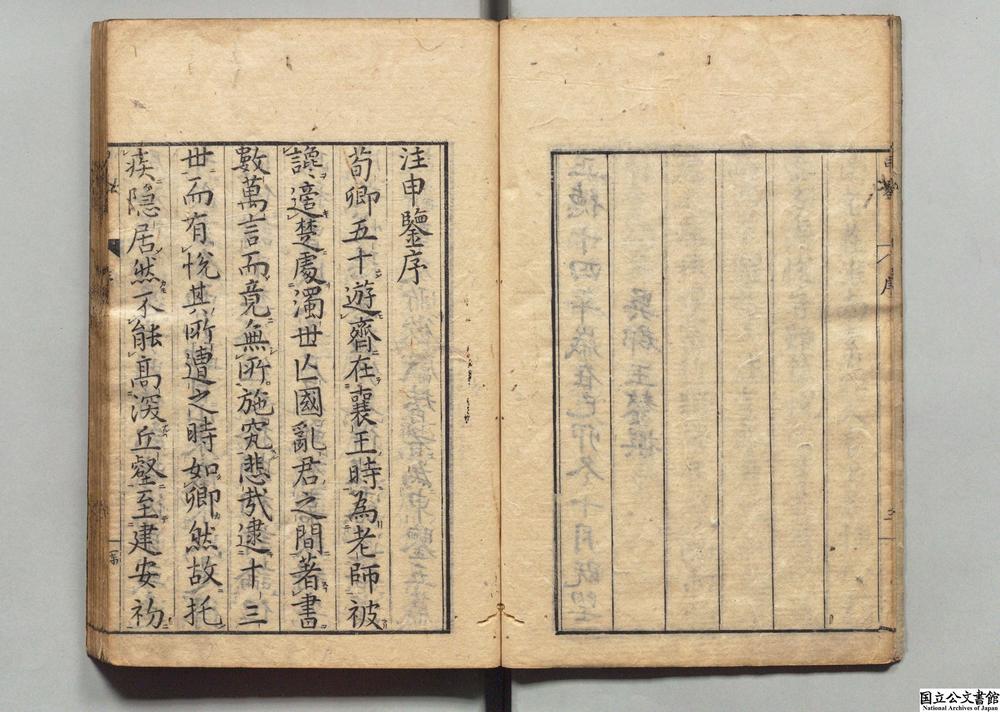 注申鑒序
荀卿五十遊齊在襄王時為老師被
讒適楚處濁世亾國亂君之間著書
數萬言而竟無所施究悲哉逮十三
世而有悅其所遭之時如卿然故托
疾隐居然不能髙深丘壑至建安初
国立公文書館
National Archives of Japan